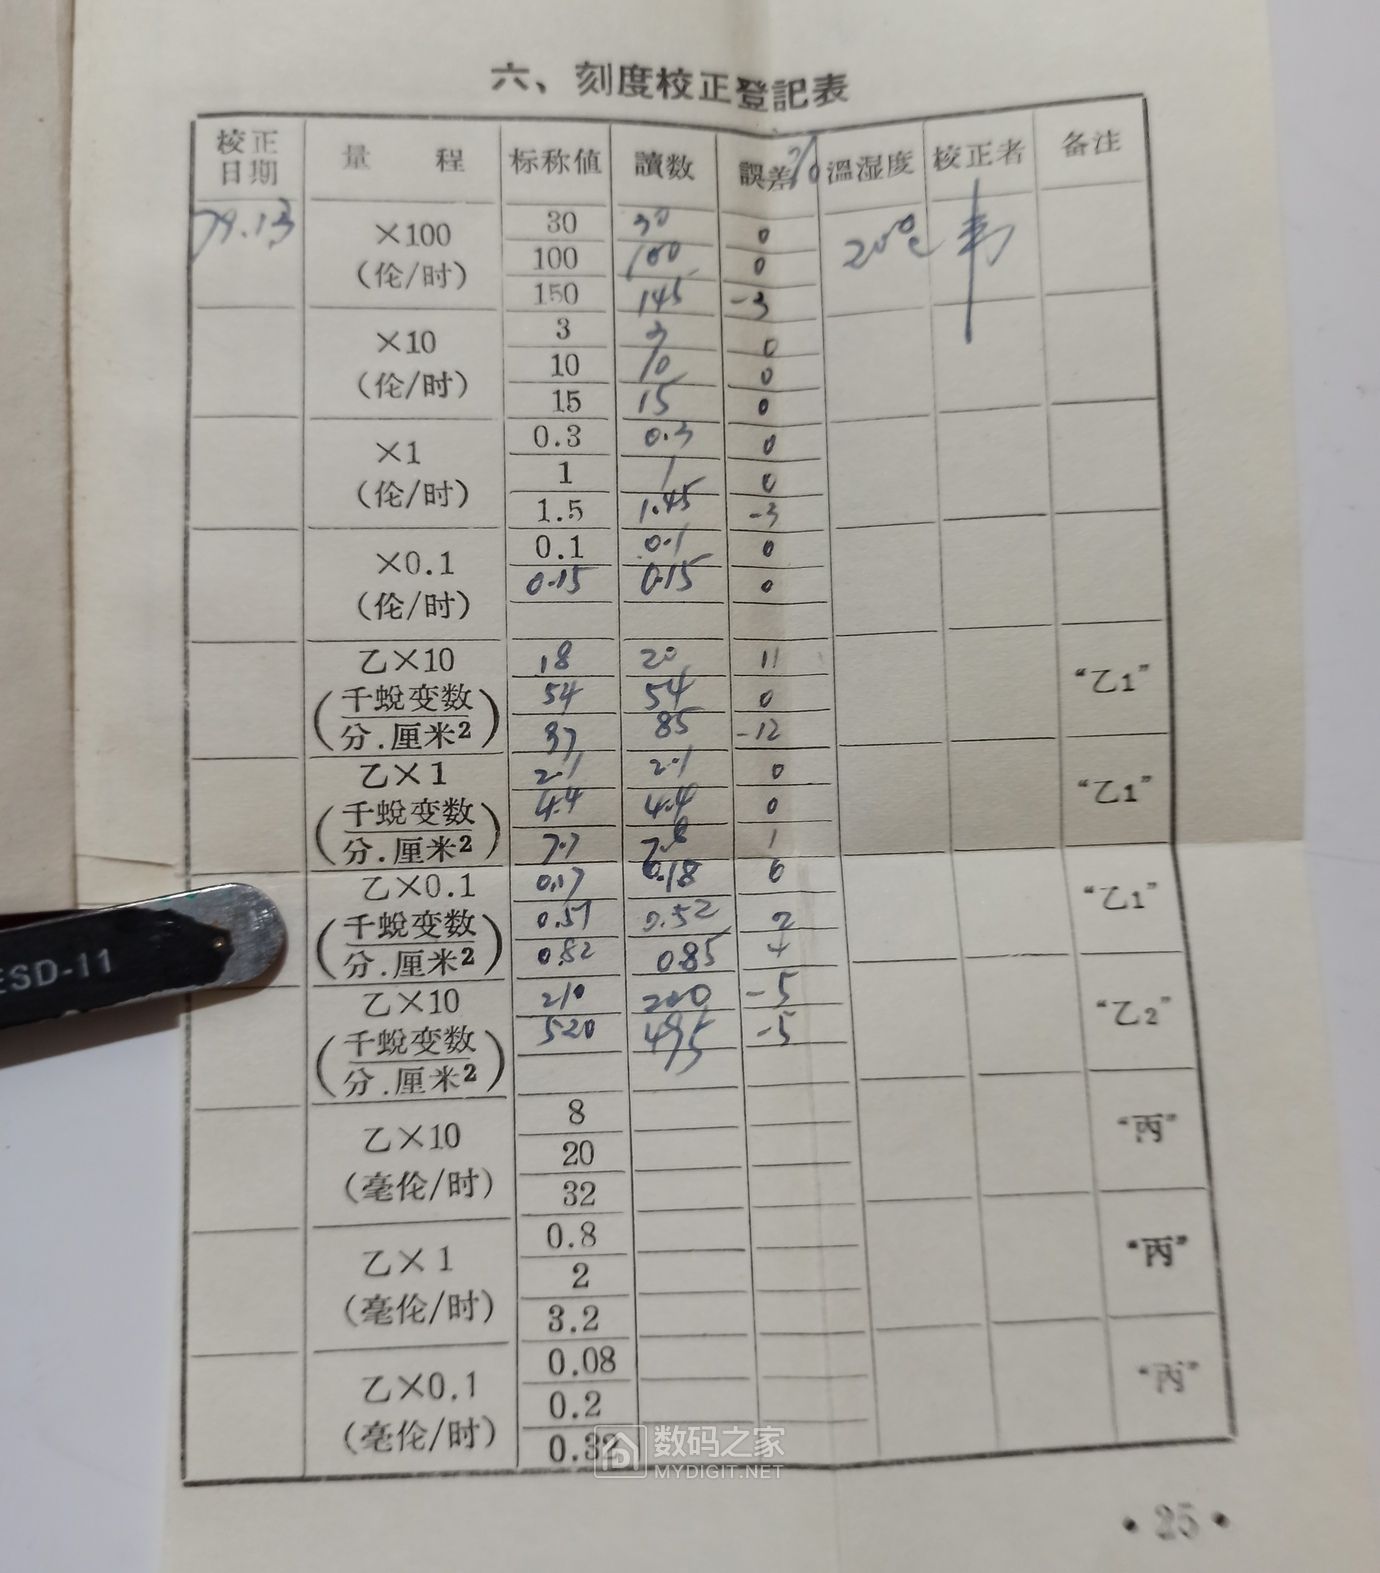 六、刻度校正登記表
校正日期 量 程 标称値 讀数 誤差% 溫湿度 校正者 备注
×100 (伦/时) 30 30 0 20℃
100 100 0
150 145 -3
×10 (伦/时) 3 3 0
10 10 0
15 15 0
×1 (伦/时) 0.3 0.3 0
1 1 0
1.5 1.45 -3
×0.1 (伦/时) 0.1 0.1 0
0.15 0.15 0
乙×10 (千蛻变数/分.厘米2) 18 20 11 “乙1”
54 54 0
85 -12
乙×1 (千蛻变数/分.厘米2) 2.1 2.1 0 “乙1”
4.4 4.4 0
7.7 7.8 1
乙×0.1 (千蛻变数/分.厘米2) 0.17 0.18 6 “乙1”
0.52 2
0.82 0.85 4
乙×10 (千蛻变数/分.厘米2) 210 200 -5 “乙2”
520 495 -5
乙×10 (毫伦/时) 8 “丙”
20
32
乙×1 (毫伦/时) 0.8 “丙”
2
3.2
乙×0.1 (毫伦/时) 0.08 “丙”
0.2
0.32
数码之家
MYDIGIT.NET
ESD-11
• 25 •